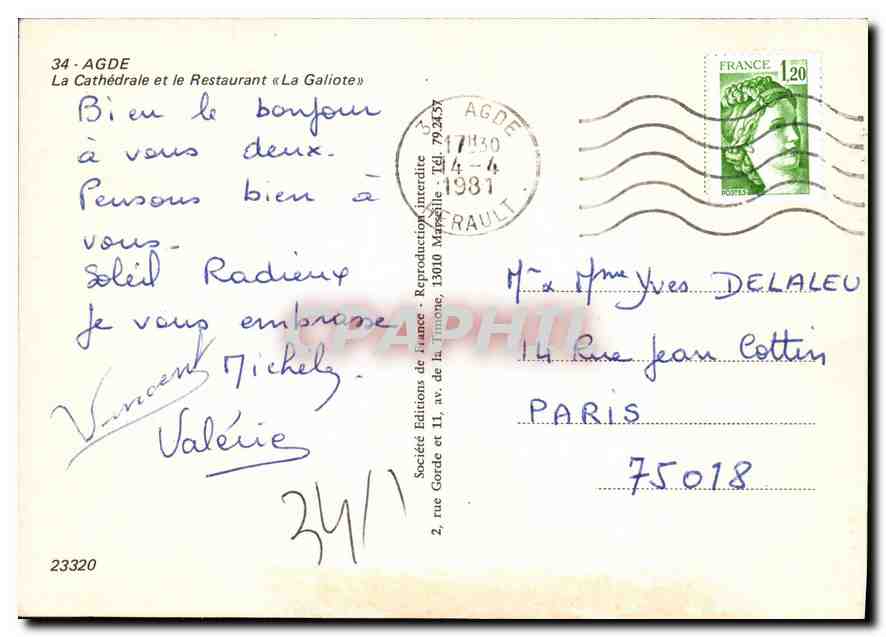 34 - AGDE
La Cathédrale et le Restaurant «La Galiote»
Bien le bonjour
à vous deux.
Pensons bien à
vous.
Soleil Radieux
je vous embrasse
Michele.
Vincent
Valérie
34/1
23320
Société Editions de France - Reproduction interdite
2, rue Gorde et 11, av. de la Timone, 13010 Marseille - Tél. 79.24.57
AGDE
17H30
14-4
1981
HERAULT
FRANCE 1,20
POSTES
Mr & Mme Yves DELALEU
14 Rue Jean Cottin
PARIS
75018
CPAPHIL